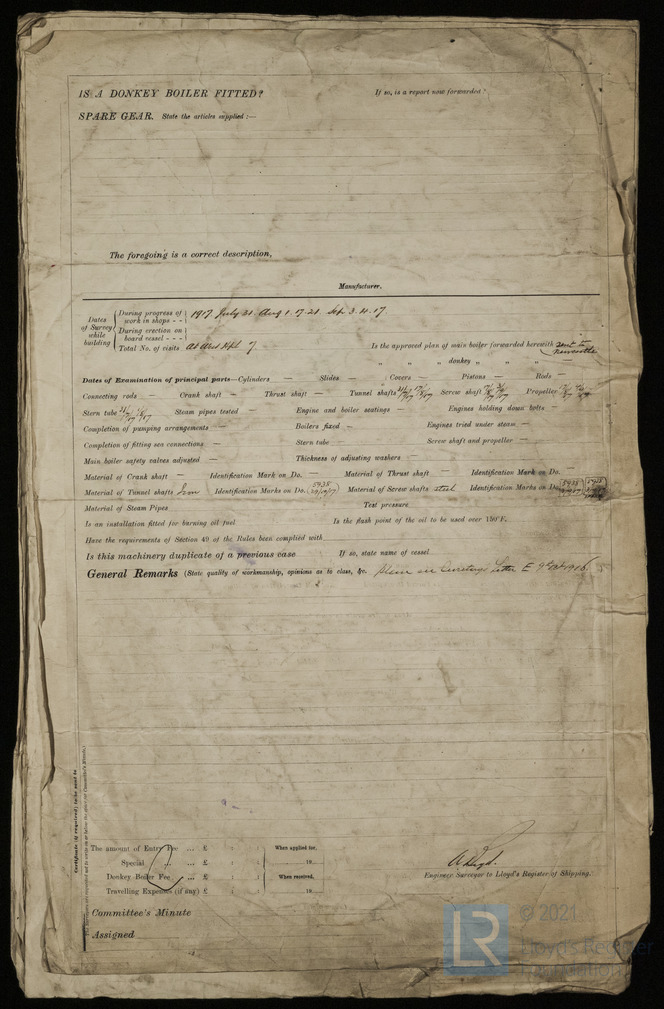 IS A DONKEY BOILER FITTED? If so, is a report now forwarded?
SPARE GEAR. State the articles supplied :—
The foregoing is a correct description,
Manufacturer.
Dates of Survey while building
During progress of work in shops - - 1917. July 21. Aug 1. 17. 21. Sep. 3. 11. 17
During erection on board vessel - - -
Total No. of visits 7. Is the approved plan of main boiler forwarded herewith sent to Newcastle
„ „ „ donkey „ „ „ —
Dates of Examination of principal parts—Cylinders — Slides — Covers — Pistons — Rods —
Connecting rods — Crank shaft — Thrust shaft — Tunnel shafts Screw shaft Propeller
Stern tube Steam pipes tested — Engine and boiler seatings — Engines holding down bolts —
Completion of pumping arrangements — Boilers fixed — Engines tried under steam —
Completion of fitting sea connections — Stern tube — Screw shaft and propeller —
Main boiler safety valves adjusted — Thickness of adjusting washers —
Material of Crank shaft — Identification Mark on Do. — Material of Thrust shaft — Identification Mark on Do. —
Material of Tunnel shafts Iron Identification Marks on Do. 5435 Material of Screw shafts steel Identification Marks on Do. 5435
Material of Steam Pipes Test pressure
Is an installation fitted for burning oil fuel Is the flash point of the oil to be used over 150°F.
Have the requirements of Section 49 of the Rules been complied with
Is this machinery duplicate of a previous case If so, state name of vessel
General Remarks (State quality of workmanship, opinions as to class, &c. Letter E 9th Oct 1916
Certificate (if required) to be sent to
The amount of Entry Fee ... £ : : When applied for,
Special ... £ : : 19
Donkey Boiler Fee ... £ : : When received,
Travelling Expenses (if any) £ : : 19
Engineer Surveyor to Lloyd's Register of Shipping.
Committee's Minute
Assigned
LR © 2021
Lloyd's Register
Foundation